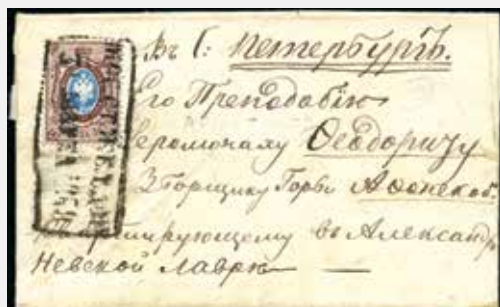 Въ С: Петербургъ.
Его Преподобiю
Iеромонаху Ѳеодориту
Зборщику Горы Аѳонской
квартирующему въ Александр
Невской Лаврѣ